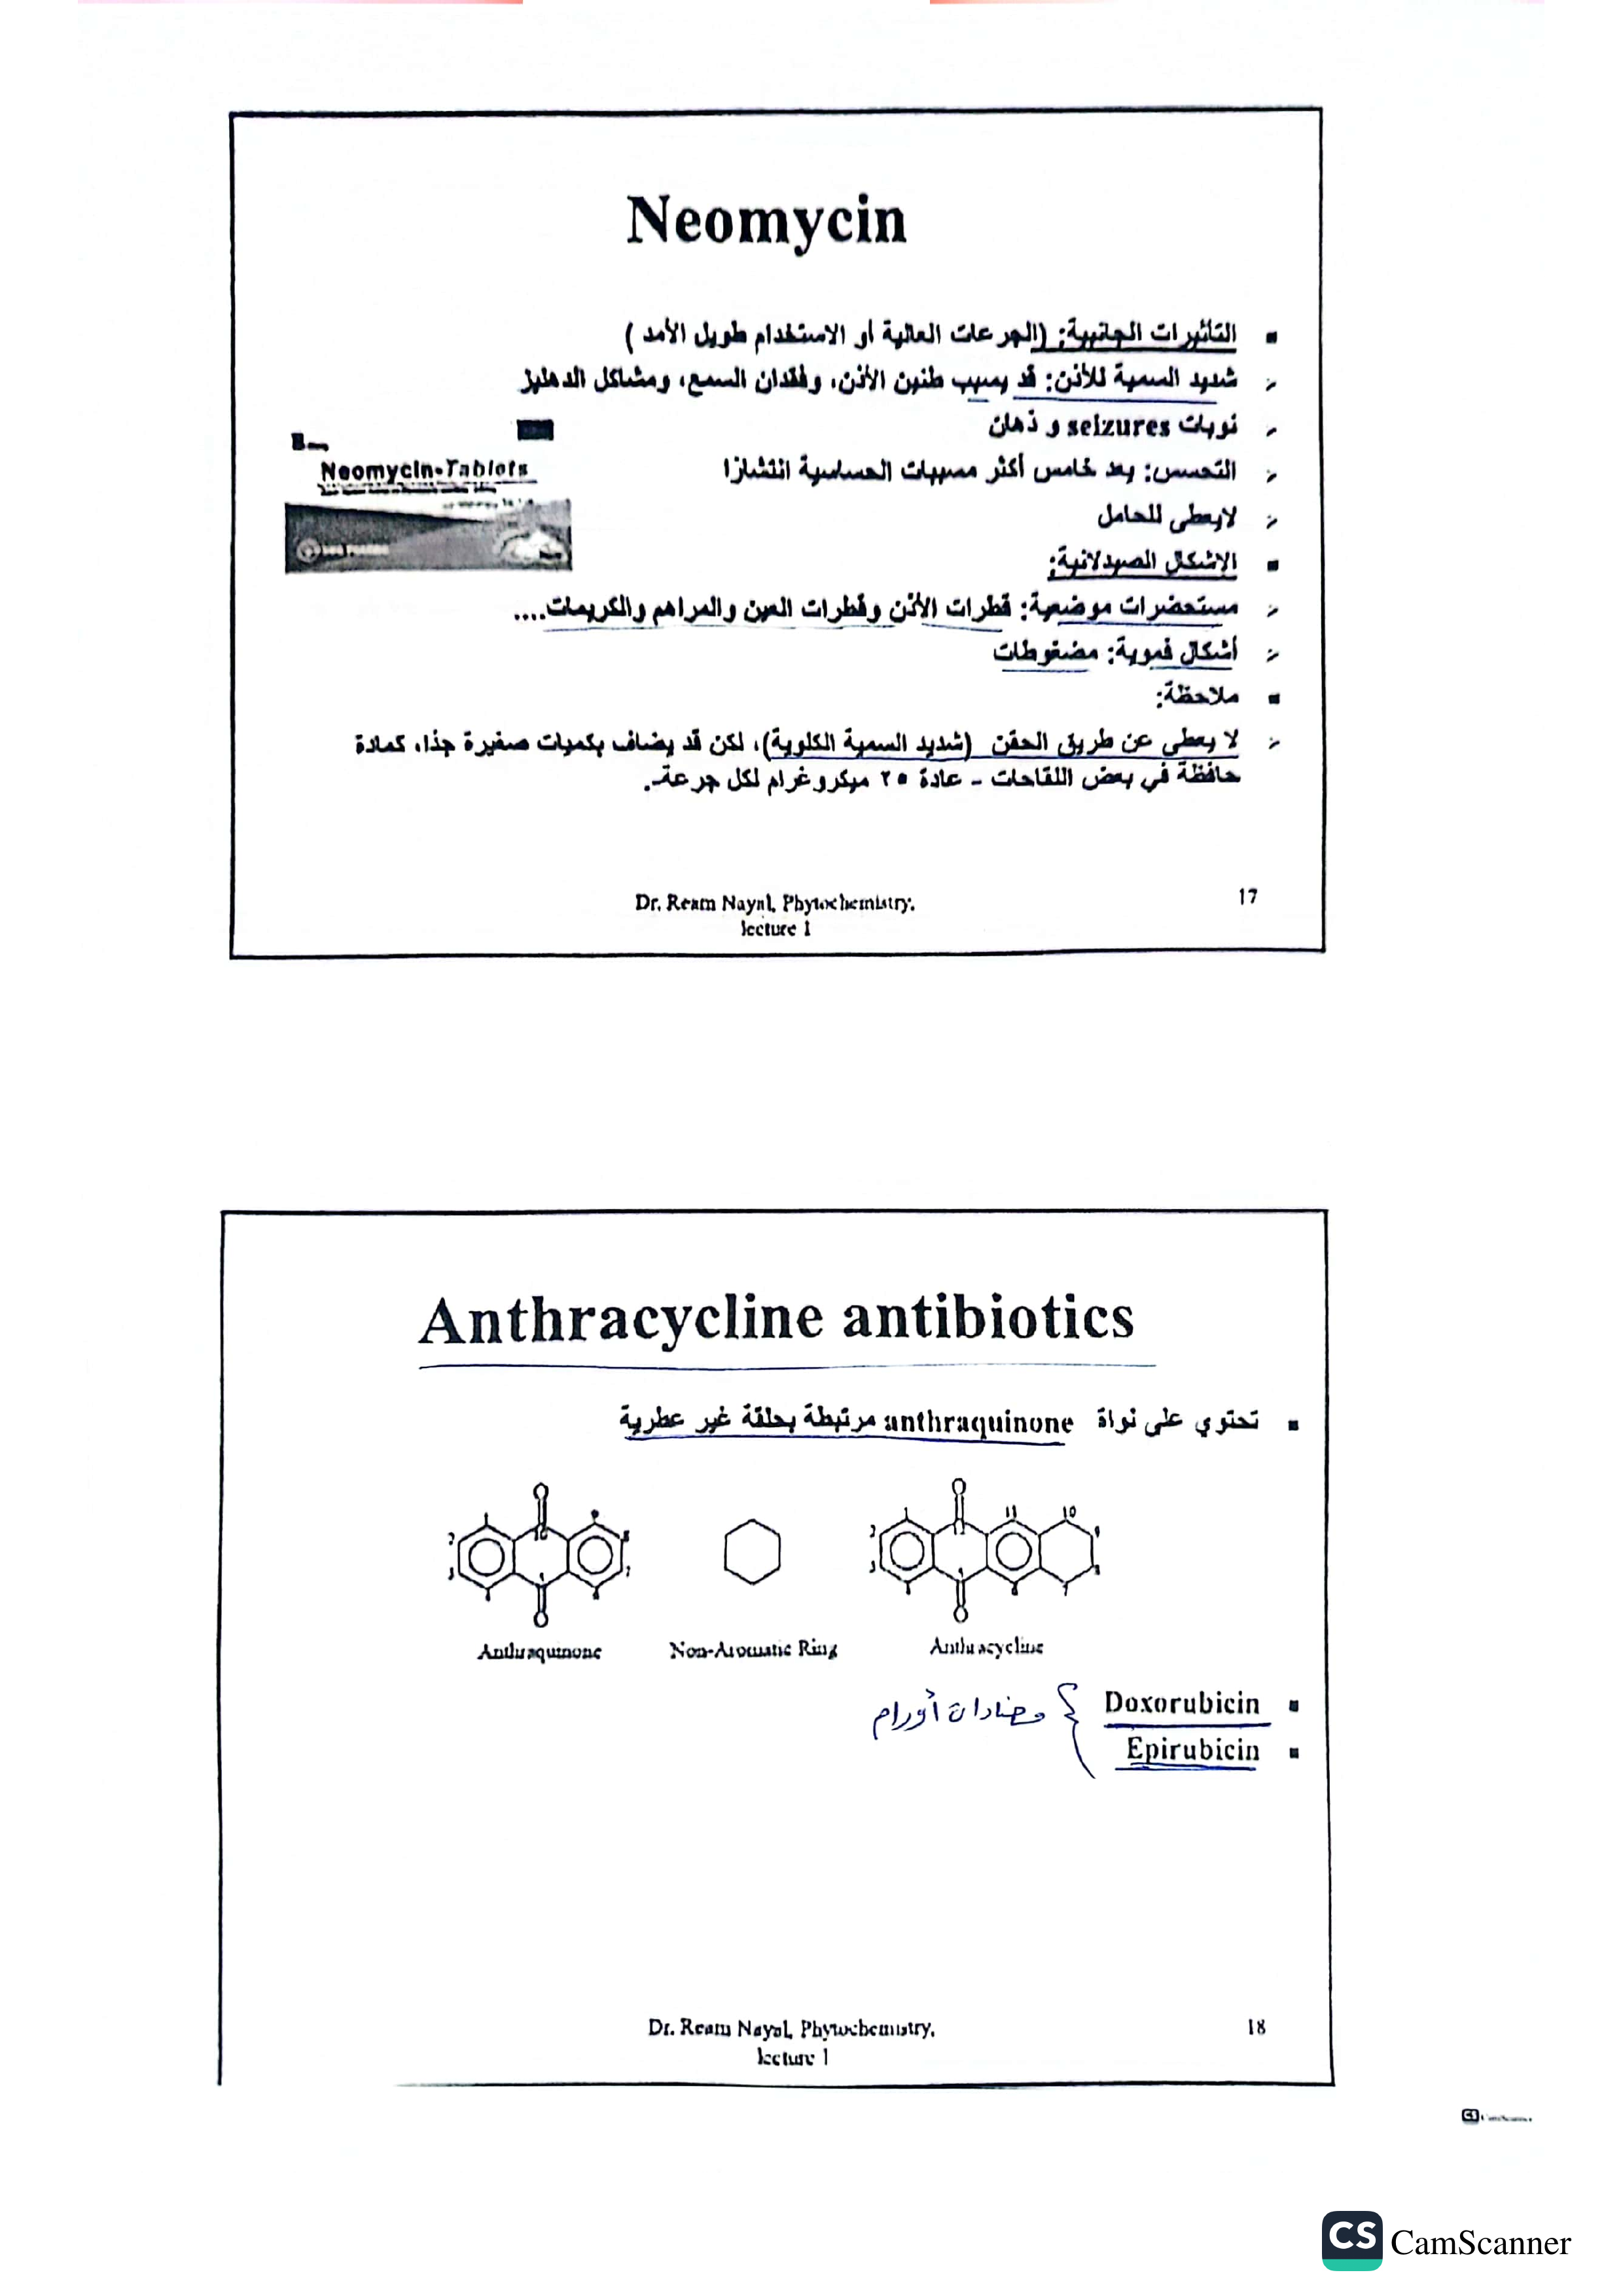 Neomycin
التأثيرات الجانبية: (الجرعات العالية أو الاستخدام طويل الأمد )
شديد السمية للأذن: قد يسبب طنين الأذن، وفقدان السمع، ومشاكل الدهليز
نوبات seizures و ذهان
التحسس: يعد خامس أكثر مسببات الحساسية انتشارا
لايعطى للحامل
الاشكال الصيدلانية:
مستحضرات موضعية: قطرات الأذن وقطرات العين والمراهم والكريمات....
أشكال فموية: مضغوطات
ملاحظة:
لا يعطى عن طريق الحقن (شديد السمية الكلوية)، لكن قد يضاف بكميات صغيرة جدا، كمادة
حافظة في بعض اللقاحات - عادة ٢٥ ميكروغرام لكل جرعة.
Neomycin-Tablets
Dr. Ream Nayal, Phytochemistry,
lecture 1
17
Anthracycline antibiotics
تحتوي على نواة anthraquinone مرتبطة بحلقة غير عطرية
O O
2 1 10 9 8
3 4 7
O O
2 1 11 10 9
3 4 6 7 8
Anthraquinone Non-Aromatic Ring Anthracycline
Doxorubicin
Epirubicin
مضادات أورام
Dr. Ream Nayal, Phytochemistry,
lecture 1
18
CS CamScanner
CS CamScanner